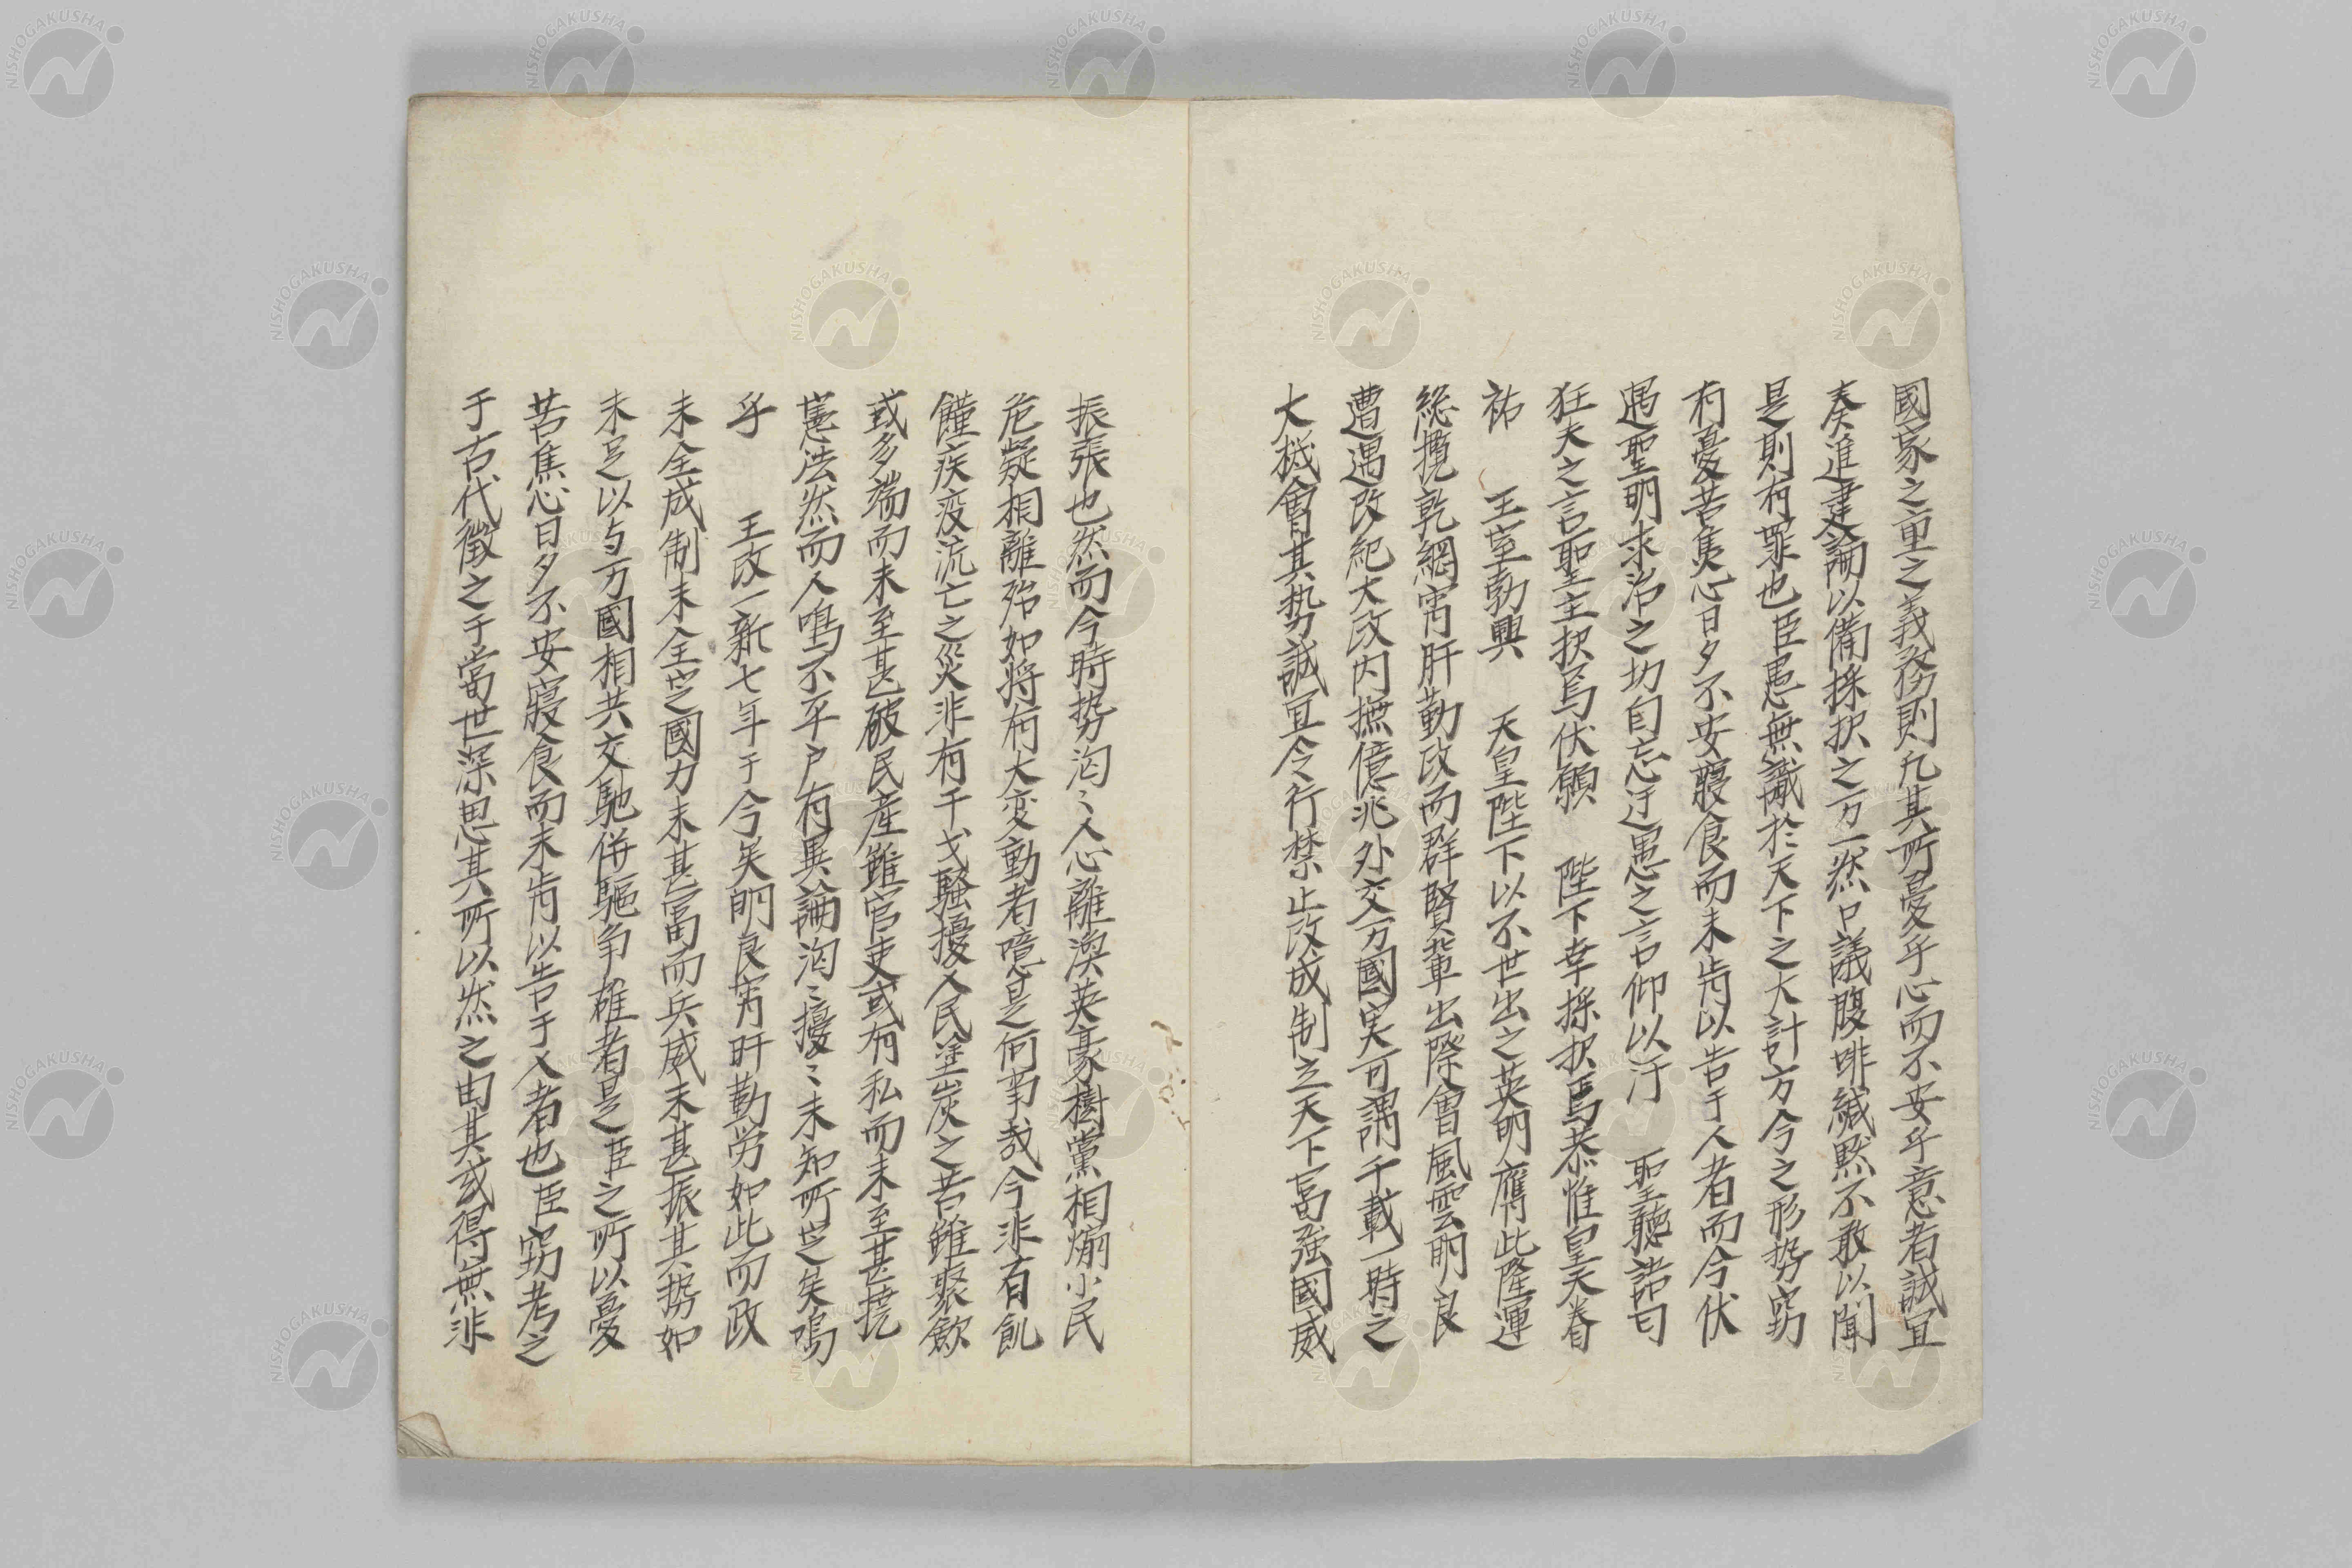 國家之重之義務則凡其所憂乎心而不安乎意者誠宜
奏進書論以備採択之万一然口議腹啡緘黙不敢以聞
是則有罪也臣愚無識於天下之大計方今之形勢窃
有憂苦焦心日夕不安寢食而未肯以告于人者而今伏
遇聖明求治之切自忘迂愚之言仰以汙　聖聽語曰
狂夫之言聖主択焉伏願　陛下幸採択焉恭惟皇天眷
祐　王室勃興　天皇陛下以不世出之英明膺此隆運
総攬乾綱宵肝勤政而群賢輩出際會風雲明良
遭遇改紀大政内撫億兆外交万國実可謂千載一時之
大機會其勢誠宜令行禁止政成制立天下富強國威
振張也然而今時勢洶〻人心離渙英豪樹黨相煽小民
危疑相離殆如将有大変動者噫是何事哉今非有飢
饉疾疫流亡之災非有干戈騒擾人民塗炭之苦雖聚歛
或多端而未至甚破民産雖官吏或有私而未至甚撓
憲法然而人鳴不平戸有異論洶〻擾〻未知所定矣嗚
乎　王政一新七年于今矣明良宵旰勤労如此而政
未全成制未全定國力未甚富而兵威未甚振其勢如
未足以与万國相共交馳併驅争雄者是臣之所以憂
苦焦心日夕不安寢食而未肯以告于人者也臣窃考之
于古代徵之于當世深思其所以然之由其或得無非